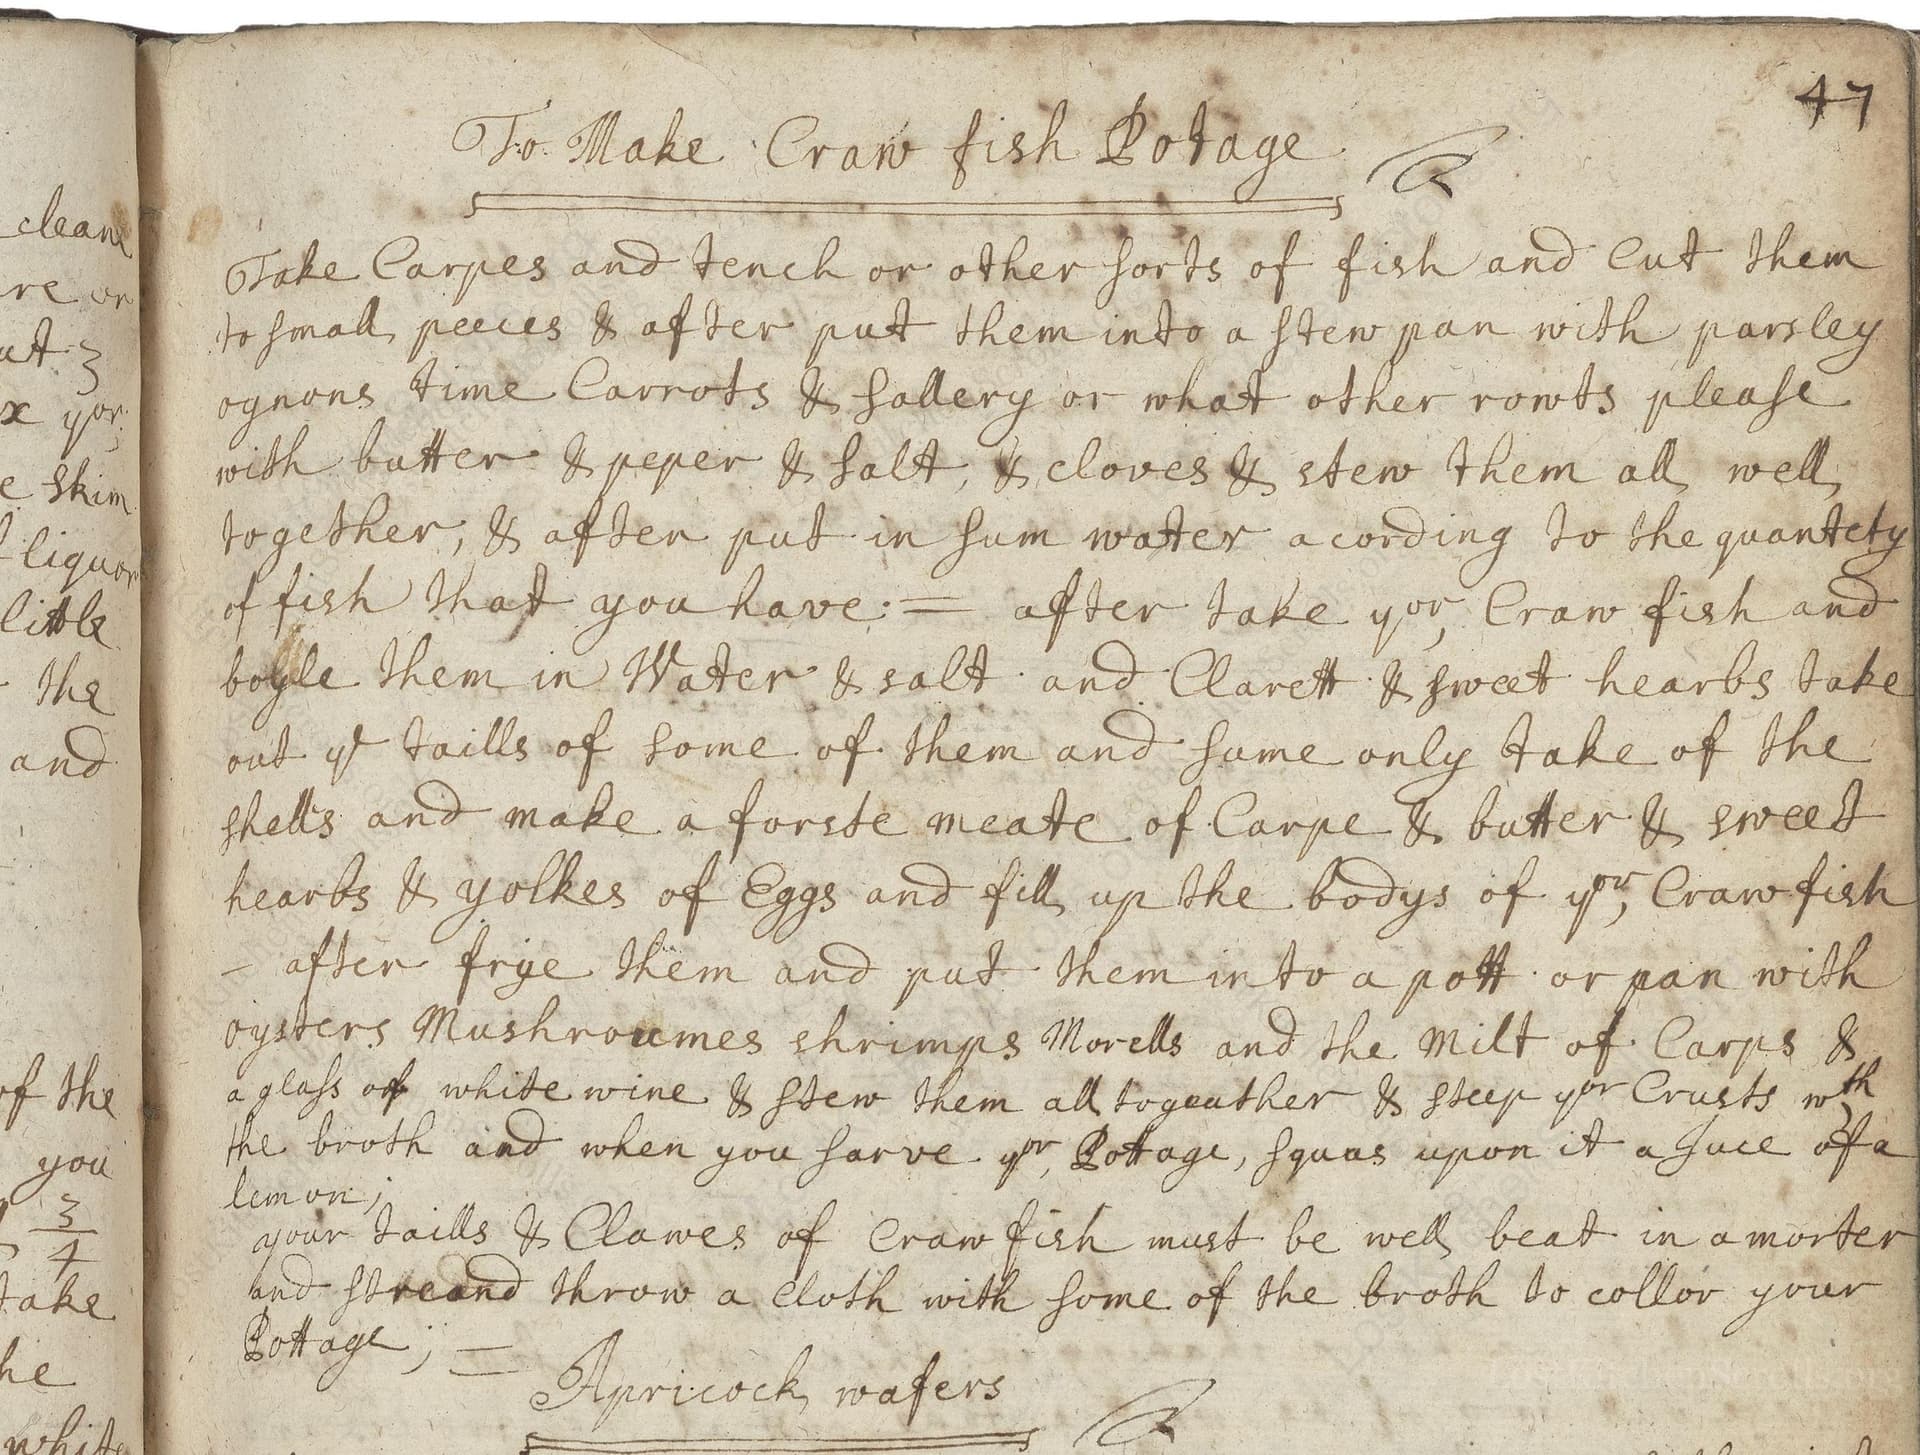 47
To Make Craw fish Potage
Take Carpes and tench or other sorts of fish and Cut them
to small peeces & after put them into a stew pan with parsley
ognons time Carrots & sallery or what other rowts please
with butter & peper & salt, & cloves & stew them all well
together, & after put in sum water acording to the quantety
of fish that you have: = after take yor, Craw fish and
boyle them in Water & salt and Clarett & sweet hearbs take
out ye taills of some of them and sume only take of the
shells and make a forste meate of Carpe & butter & sweet
hearbs & yolkes of Eggs and fill up the bodys of yor, Crawfish
- after frye them and put them into a pott or pan with
oysters Mushroumes shrimps Morells and the Milt of Carps &
a glass of white wine & stew them all togeather & steep yor Crusts wth
the broth and when you sarve yor, Pottage, squas upon it a Juce of a
lemon;
your taills & Clawes of Craw fish must be well beat in a morter
and streand throw a cloth with some of the broth to collor your
Pottage; =
Apricock wafers
cleane
re or
ut 3
x yor;
e skim
liquor
little
the
and
of the
you
3/4
take
he
white